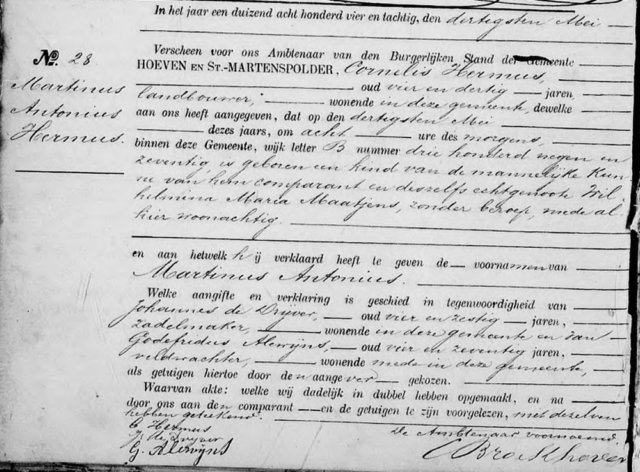 In het jaar een duizend acht honderd vier en tachtig, den dertigsten Mei
Verscheen voor ons Ambtenaar van den Burgerlijken Stand der Gemeente
No. 28
HOEVEN EN ST.-MARTENSPOLDER, Cornelis Hermus,
oud vier en dertig jaren,
Martinus
Antonius
Hermus.
landbouwer, wonende in deze gemeente, dewelke
aan ons heeft aangegeven, dat op den dertigsten Mei
dezes jaars, om acht ure des morgens,
binnen deze Gemeente, wijk letter B nummer drie honderd negen en
zeventig, is geboren een kind van de mannelijke kun
ne van hem comparant en deszelfs echtgenoote Wil
helmina Maria Maatjens, zonder beroep, mede al
hier woonachtig.
en aan hetwelk hij verklaard heeft te geven de voornamen van
Martinus Antonius.
Welke aangifte en verklaring is geschied in tegenwoordigheid van
Johannes de Drijver, oud vier en zestig jaren,
zadelmaker, wonende in deze gemeente en van
Godefridus Alewijns, oud vier en zeventig jaren,
veldwachter, wonende mede in deze gemeente,
als getuigen hiertoe door den aangever gekozen.
Waarvan akte: welke wij dadelijk in dubbel hebben opgemaakt, en na
door ons aan den comparant en de getuigen te zijn voorgelezen, met dezelven
hebben geteekend.
De Ambtenaar voornoemd.
C Hermus
J de Drijver
G. Alewijns
Broekhoven